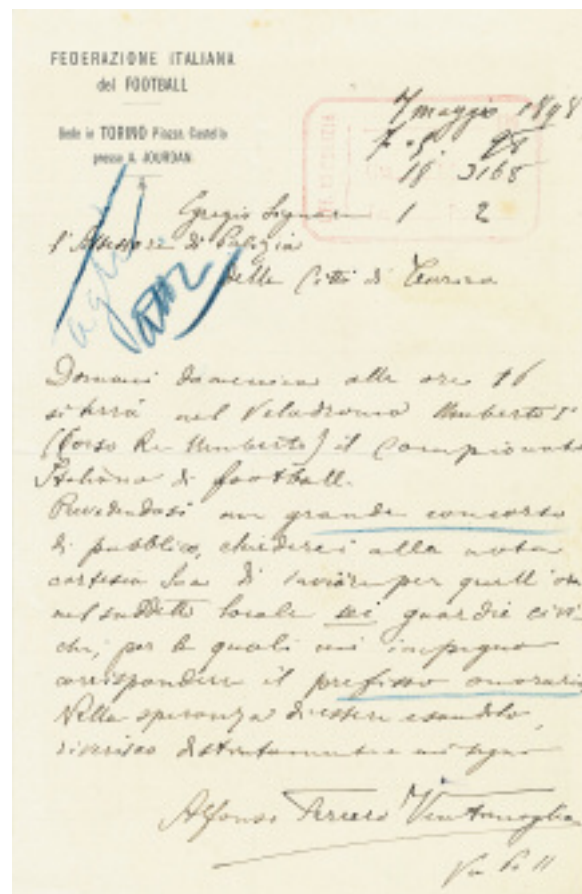 FEDERAZIONE ITALIANA
del FOOTBALL
Sede in TORINO Piazza Castello
presso A. JOURDAN
7 maggio 1898
7 . 5. 98
18 3165
1 2
Egregio Signore
l'Assessore di Polizia
della Città di Torino
Domani domenica alle ore 16
si terrà nel Velodromo Umberto I°
(Corso Re Umberto) il Campionato
Italiano di football.
Prevedendosi un grande concorso
di pubblico, chiederei alla nota
cortesia Sua di inviare per quell'ora
nel suddetto locale sei guardie civi-
che, per le quali mi impegno
corrispondere il prefisso onorario
Nella speranza di essere esaudito,
riverisco distintamente e mi segno
Alfonso Ferrero
Via Po 11